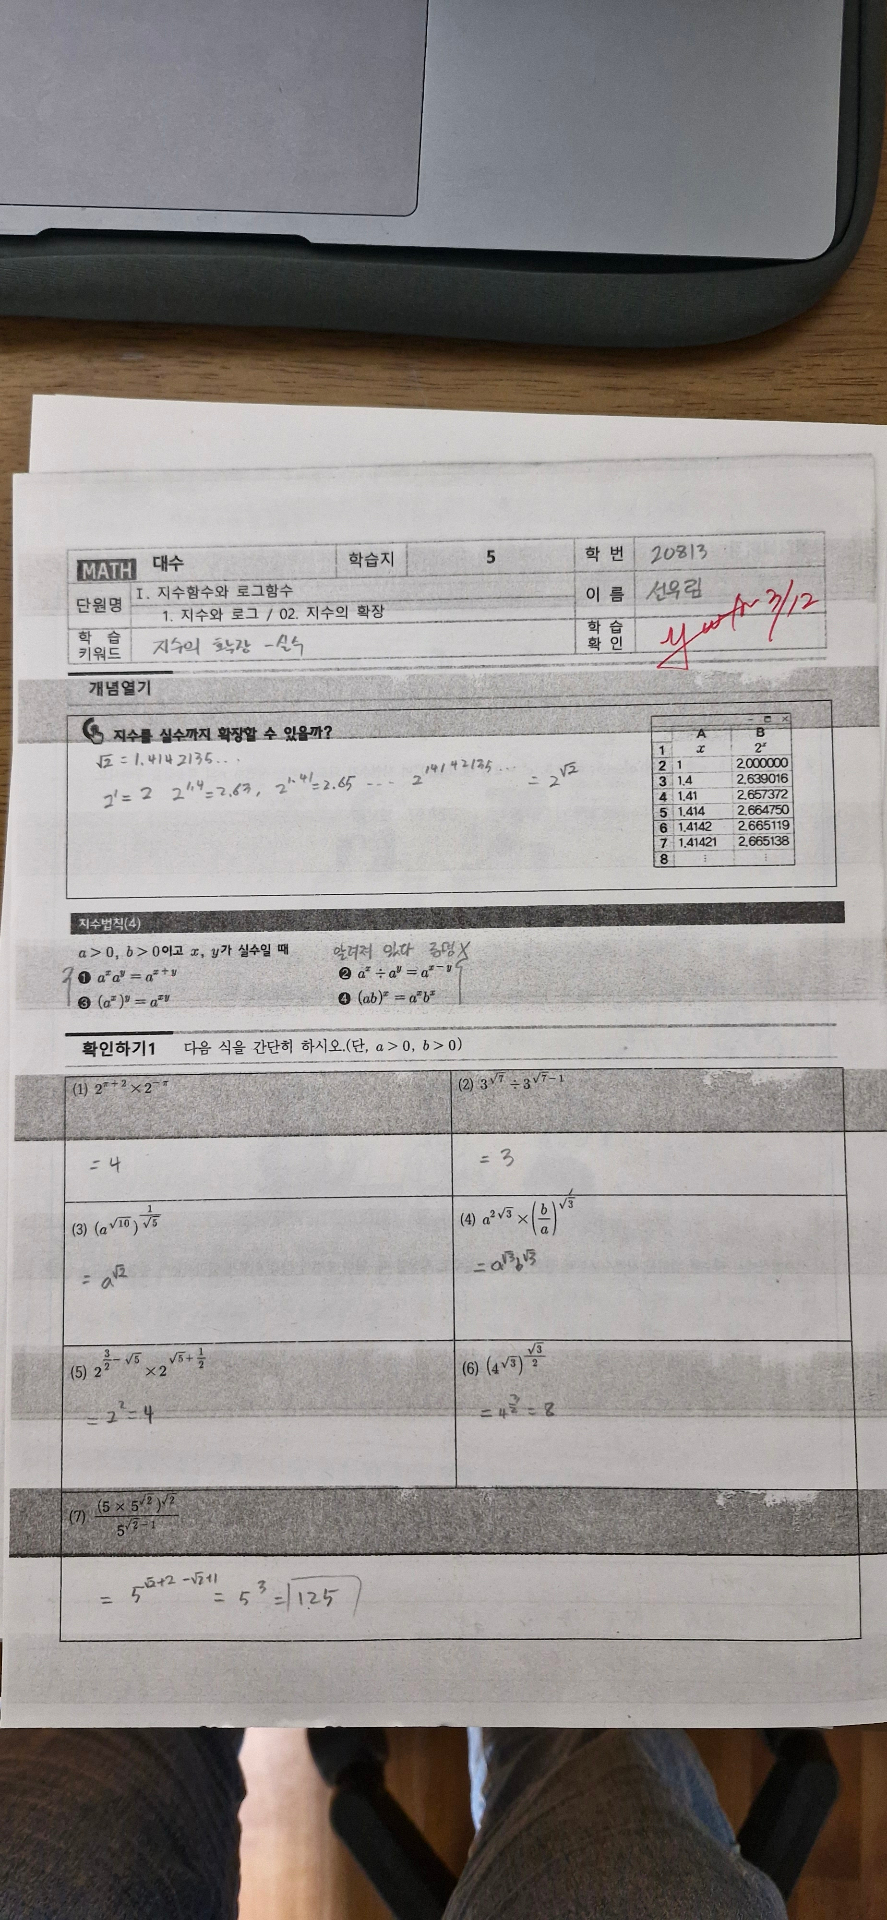 MATH 대수 학습지 5 학 번 20813
단원명 I. 지수함수와 로그함수 이 름 선우림
1. 지수와 로그 / 02. 지수의 확장
학 습 키워드 지수의 확장 - 실수 학 습 확 인 3/12
개념열기
지수를 실수까지 확장할 수 있을까?
√2 = 1.4142135...
2¹ = 2 2^1.4 = 2.63, 2^1.41 = 2.65 ... 2^1.4142135... = 2^√2
A B
1 x 2ˣ
2 1 2.000000
3 1.4 2.639016
4 1.41 2.657372
5 1.414 2.664750
6 1.4142 2.665119
7 1.41421 2.665138
8 ⋮ ⋮
지수법칙(4)
a > 0, b > 0이고 x, y가 실수일 때 알려져 있다 증명X
❶ aˣaʸ = aˣ⁺ʸ ❷ aˣ ÷ aʸ = aˣ⁻ʸ
❸ (aˣ)ʸ = aˣʸ ❹ (ab)ˣ = aˣbˣ
확인하기1 다음 식을 간단히 하시오.(단, a > 0, b > 0)
(1) 2^(π+2) × 2^(-π) (2) 3^√7 ÷ 3^(√7-1)
= 4 = 3
(3) (a^√10)^(1/√5) (4) a^(2√3) × (b/a)^√3
= a^√2 = a^√3 b^√3
(5) 2^(3/2-√5) × 2^(√5+1/2) (6) (4^√3)^(√3/2)
= 2² = 4 = 4^(3/2) = 8
(7) (5 × 5^√2)^√2 / 5^(√2-1)
= 5^(√2+2-√2+1) = 5³ = 125